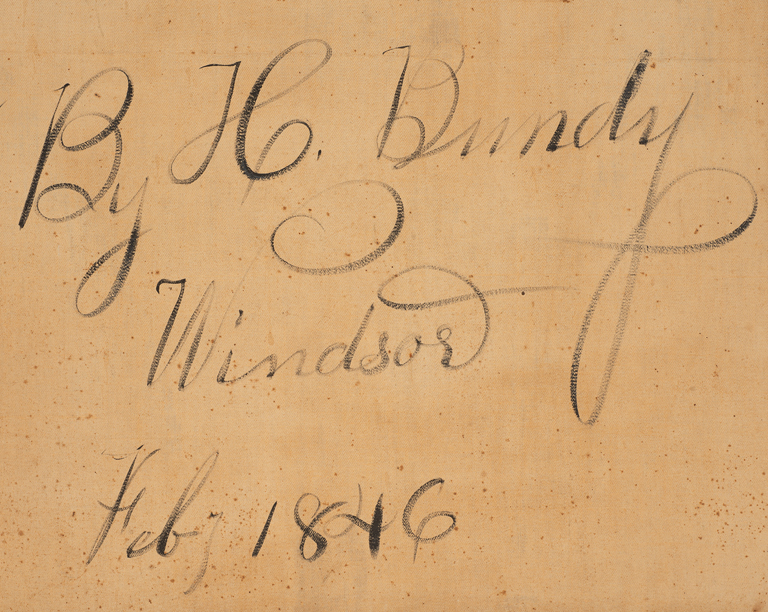 By H. Bundy
Windsor
Feby 1846